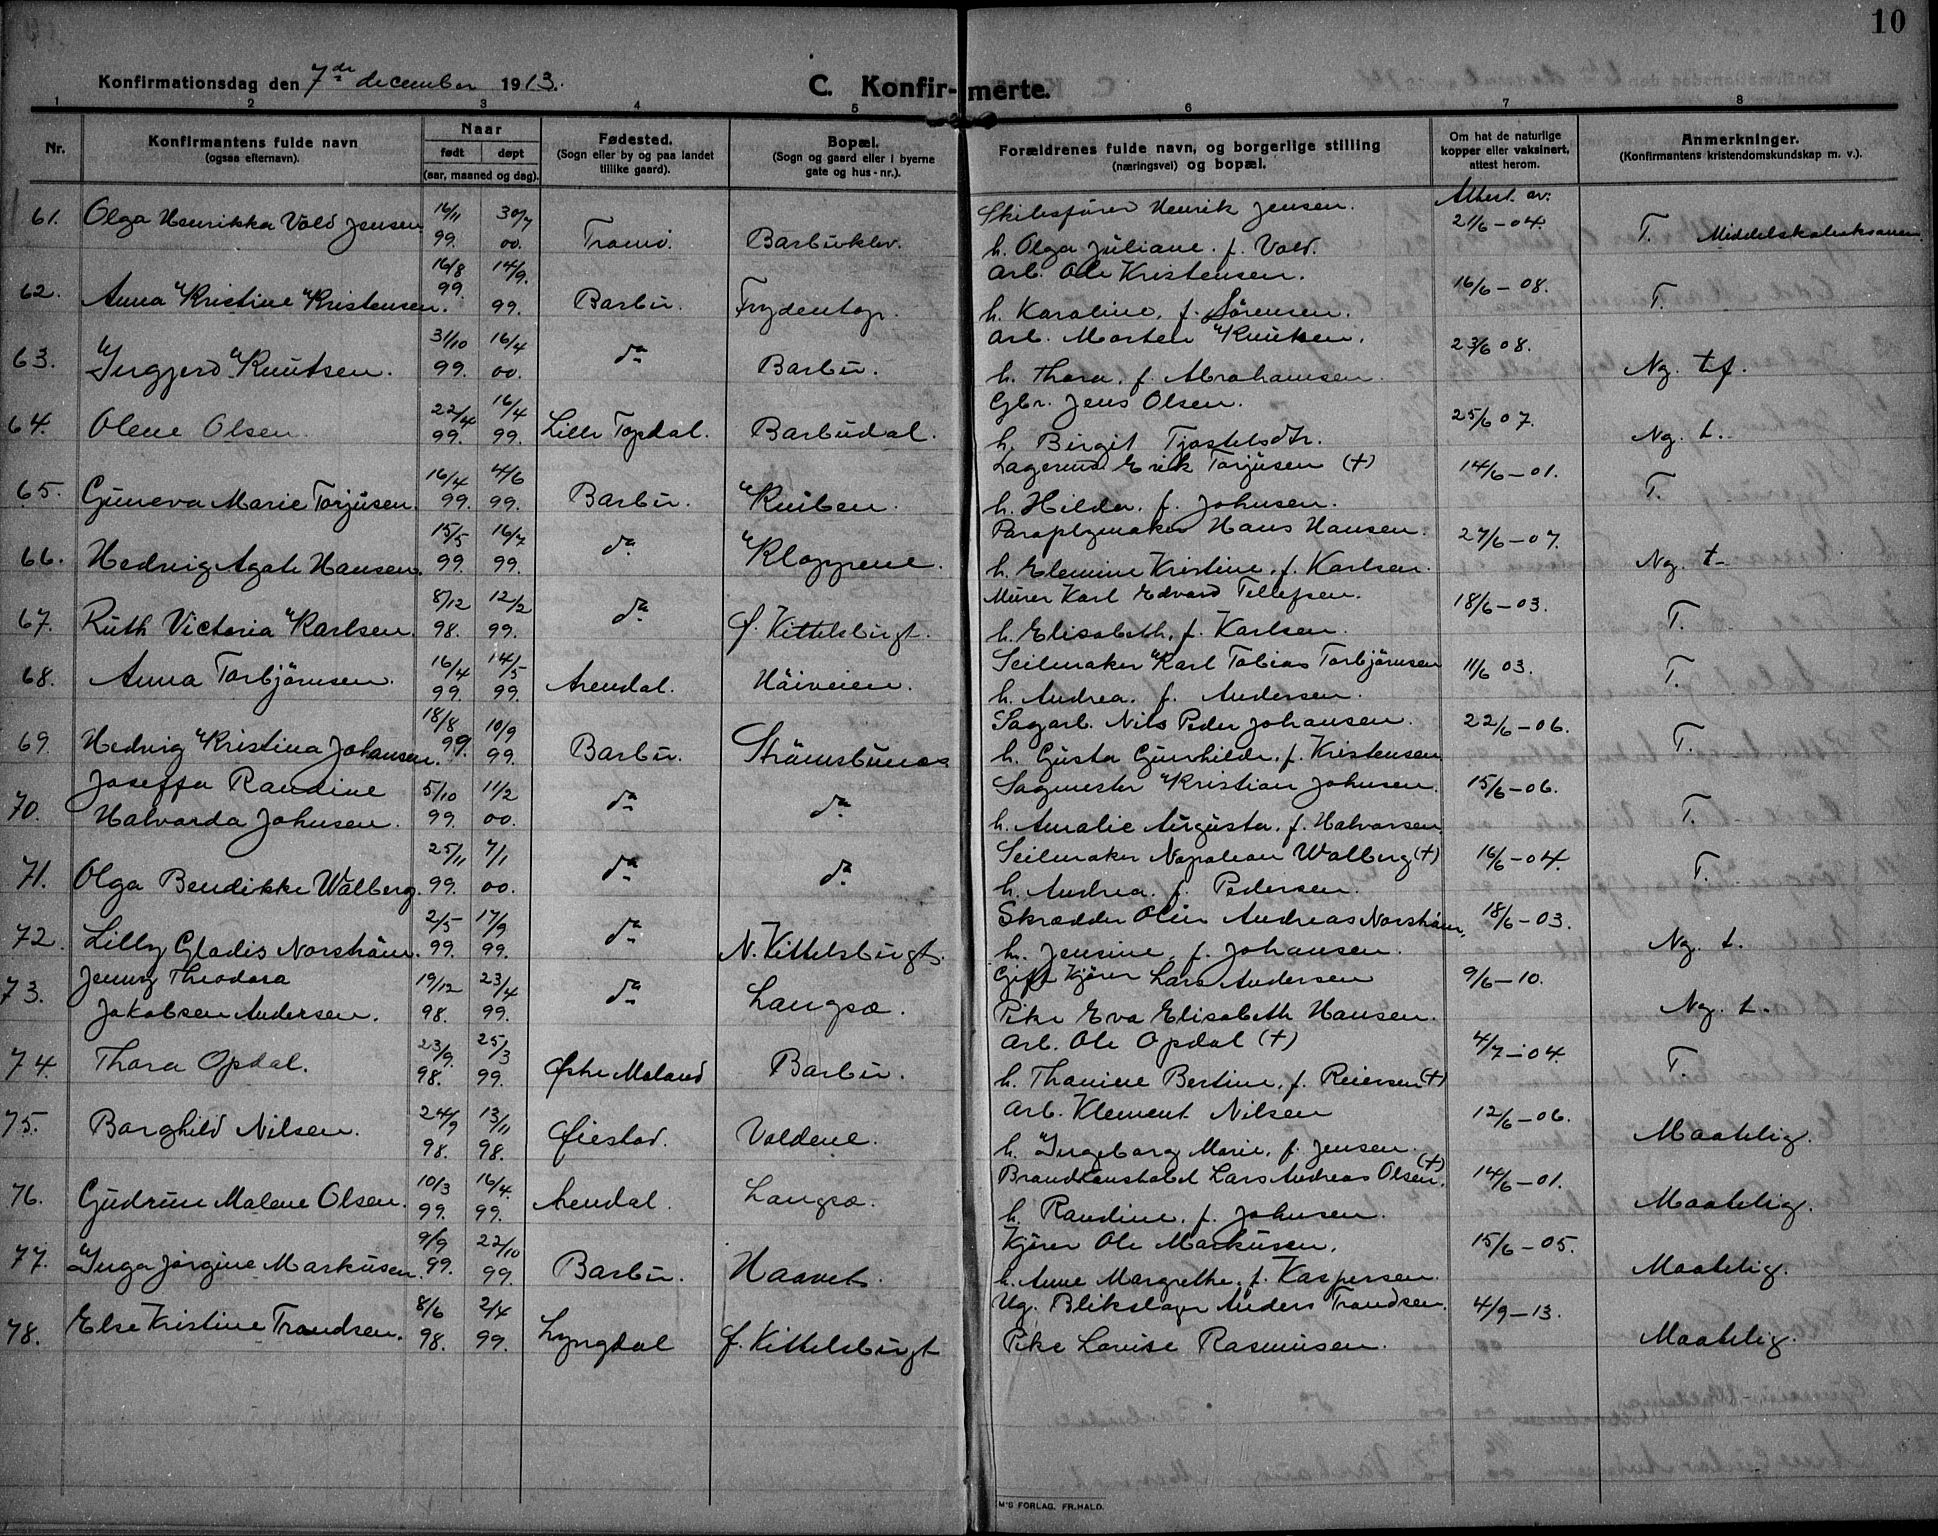 10
Konfirmationsdag den 7de december 1913.
C. Konfir-merte.
1 2 3 4 5 6 7 8
Nr. Konfirmantens fulde navn (ogsaa efternavn). Naar født døpt (aar, maaned og dag). Fødested. (Sogn eller by og paa landet tillike gaard). Bopæl. (Sogn og gaard eller i byerne gate og hus-nr.). Forældrenes fulde navn, og borgerlige stilling (næringsvei) og bopæl. Om hat de naturlige kopper eller vaksinert, attest herom. Anmerkninger. (Konfirmantens kristendomskundskap m. v.).
61. Olga Henrikka Vold Jensen 16/11 99. 30/7 00. Tromö. Barbuklev. Skibsfører Henrik Jensen. Attest av. 21/6-04. T. Middelskoleeksamen
h. Olga Juliane. f. Vold.
62. Anna Kristine Kristensen. 16/8 99. 14/9. 99. Barbu. Frydentop. Arb. Ole Kristensen. 16/6-08. T.
h. Karoline. f. Sørensen.
63. Ingjerd Knutsen. 31/10 99. 16/4 00. da Barbu. Arb. Morten Knutsen. 23/6 08. Ng. tf.
h. Thora. f. Abrahamsen.
64. Olene Olsen. 22/4 99. 16/4 99. Lille Topdal. Barbudal. Gbr. Jens Olsen. 25/6 07. Ng. t.
h. Birgit Tjostelsdtr.
65. Guneva Marie Torjusen. 16/4 99. 4/6 99. Barbu. Knuben. Erik Torjusen (+) 14/6-01. T.
h. Hilda. f. Johnsen.
66. Hedvig Agate Hansen. 15/5 99. 16/7 99. da Kloppene. Paraplymaker Hans Hansen. 27/6-07. Ng. t
h. Elemine Kristine. f. Karlsen.
67. Ruth Victoria Karlsen. 8/12 98. 12/2 99. da f. Kittelsbugt. Murer Karl Edvard Tellefsen. 18/6-03. T.
h. Elisabeth. f. Karlsen.
68. Anna Torbjörnsen. 16/4 99. 14/5 99. Arendal. Häiveien. Seilmaker Karl Tobias Torbjörnsen 11/6 03. T.
h. Andrea. f. Andersen.
69. Hedvig Kristina Johansen. 18/8 99. 10/9 99. Barbu. Strömsbunes Sagarb. Nils Peder Johansen. 22/6-06. T.
h. Gusta Gunhilde. f. Kristensen
70. Joseffa Randine 5/10 99. 11/2 00. da da Sagmester Kristian Johnsen. 15/6-06. T.
Halvarda Johnsen. h. Amalie Augusta. f. Halvorsen.
71. Olga Bendikke Walberg. 25/11 99. 7/1 00. da da Seilmaker Napoleon Walberg (+) 16/6-04. T.
h. Andrea. f. Pedersen.
72. Lilly Gladis Norström. 2/5 99. 17/9 99. da N. Kittelsbugt. Skrædder Olin Andreas Norström. 18/6-03. Ng. t.
h. Jensine. f. Johansen.
73. Jenny Theodora 19/12 98. 23/4 99. da Langsæ. Gift Kjører Lars Andersen 9/6-10. Ng. t.
Jakobsen Andersen. Pike Eva Elisabeth Hansen.
74. Thora Opdal. 23/9. 98. 25/3 99. Østre Moland Barbu. Arb. Ole Opdal (+) 4/7-04. T.
h. Thanine Bertine. f. Reiersen (+)
75. Borghild Nilsen. 24/9 98. 13/11 98. Øiestad. Voldene. Arb. Klement Nilsen 12/6-06. Maatelig.
h. Ingeborg Marie. f. Jensen.
76. Gudrun Malene Olsen. 10/3 99. 16/4. 99. Arendal. Langsæ. Brandkonstabel Lars Andreas Olsen. (+) 14/6-01. Maatelig.
h. Randine. f. Johnsen.
77. Inga Jörgine Markusen. 9/9 99. 22/10 99. Barbu. Haavet. Kjører Ole Markussen. 15/6-05. Maatelig.
h. Anne Margrethe. f. Kaspersen.
78. Else Kristine Trondsen. 8/6 98. 2/4 99. Lyngdal f. Kittelsbugt Ug. Blikslager Anders Trondsen. 4/9-13. Maatelig.
Pike Lovise Rasmusen.
M'S FORLAG. FR.HALD.